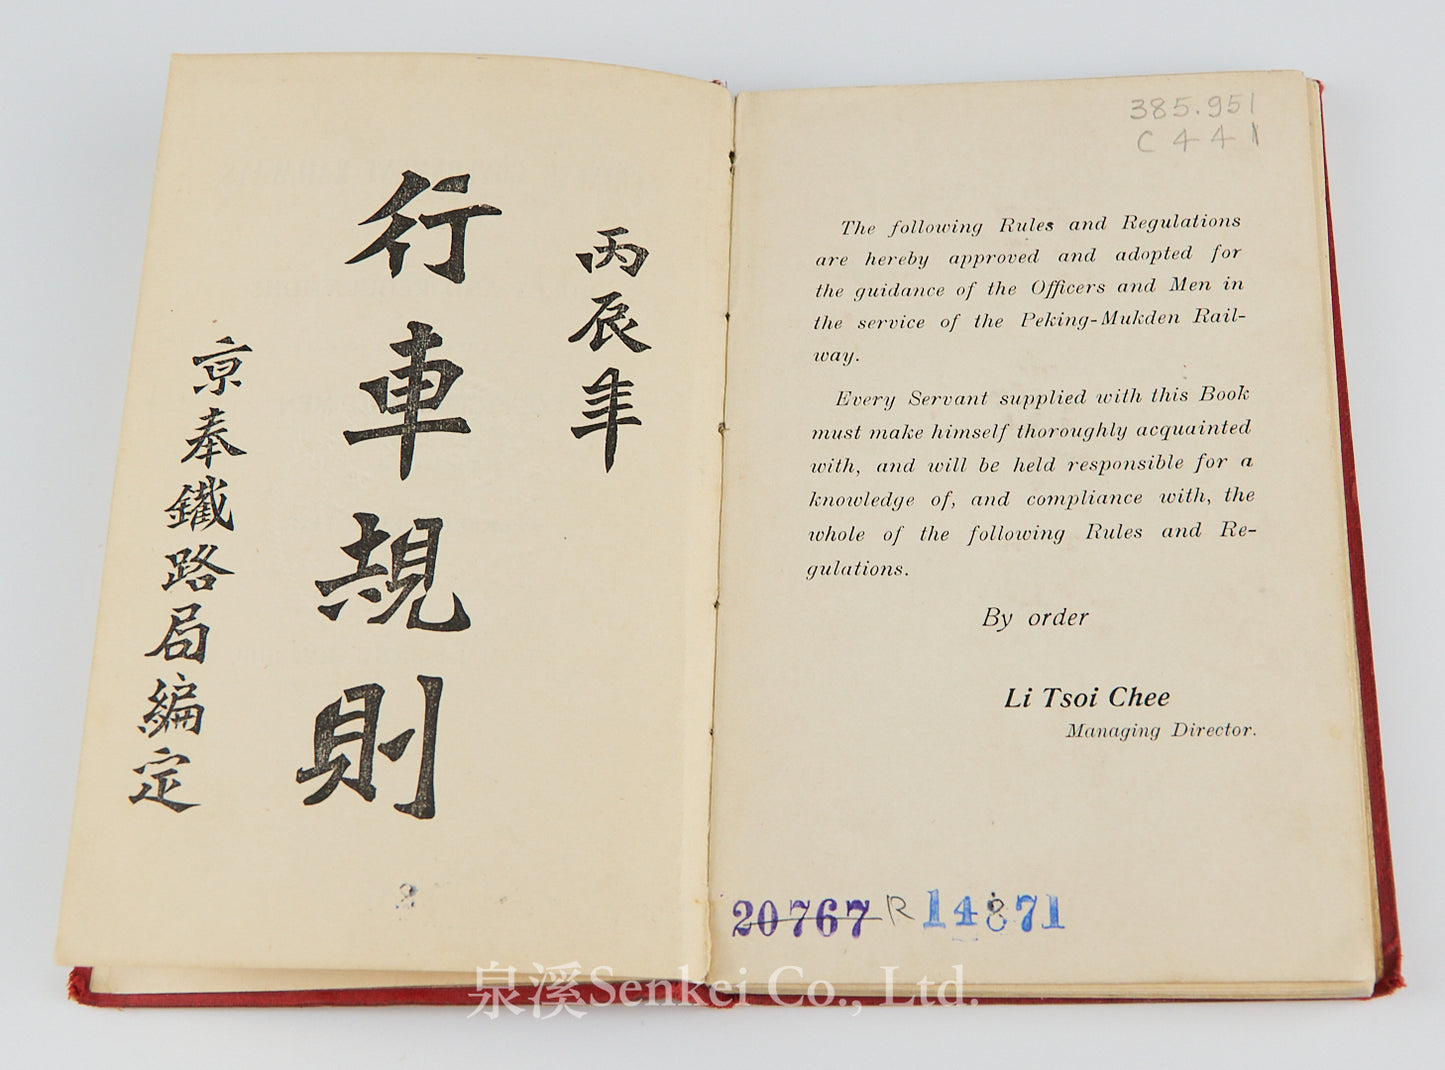 丙辰年
行車規則
京奉鐵路局編定
385.951
C441
The following Rules and Regulations
are hereby approved and adopted for
the guidance of the Officers and Men in
the service of the Peking-Mukden Rail-
way.
Every Servant supplied with this Book
must make himself thoroughly acquainted
with, and will be held responsible for a
knowledge of, and compliance with, the
whole of the following Rules and Re-
gulations.
By order
Li Tsoi Chee
Managing Director.
20767 R 14871
泉溪Senkei Co., Ltd.